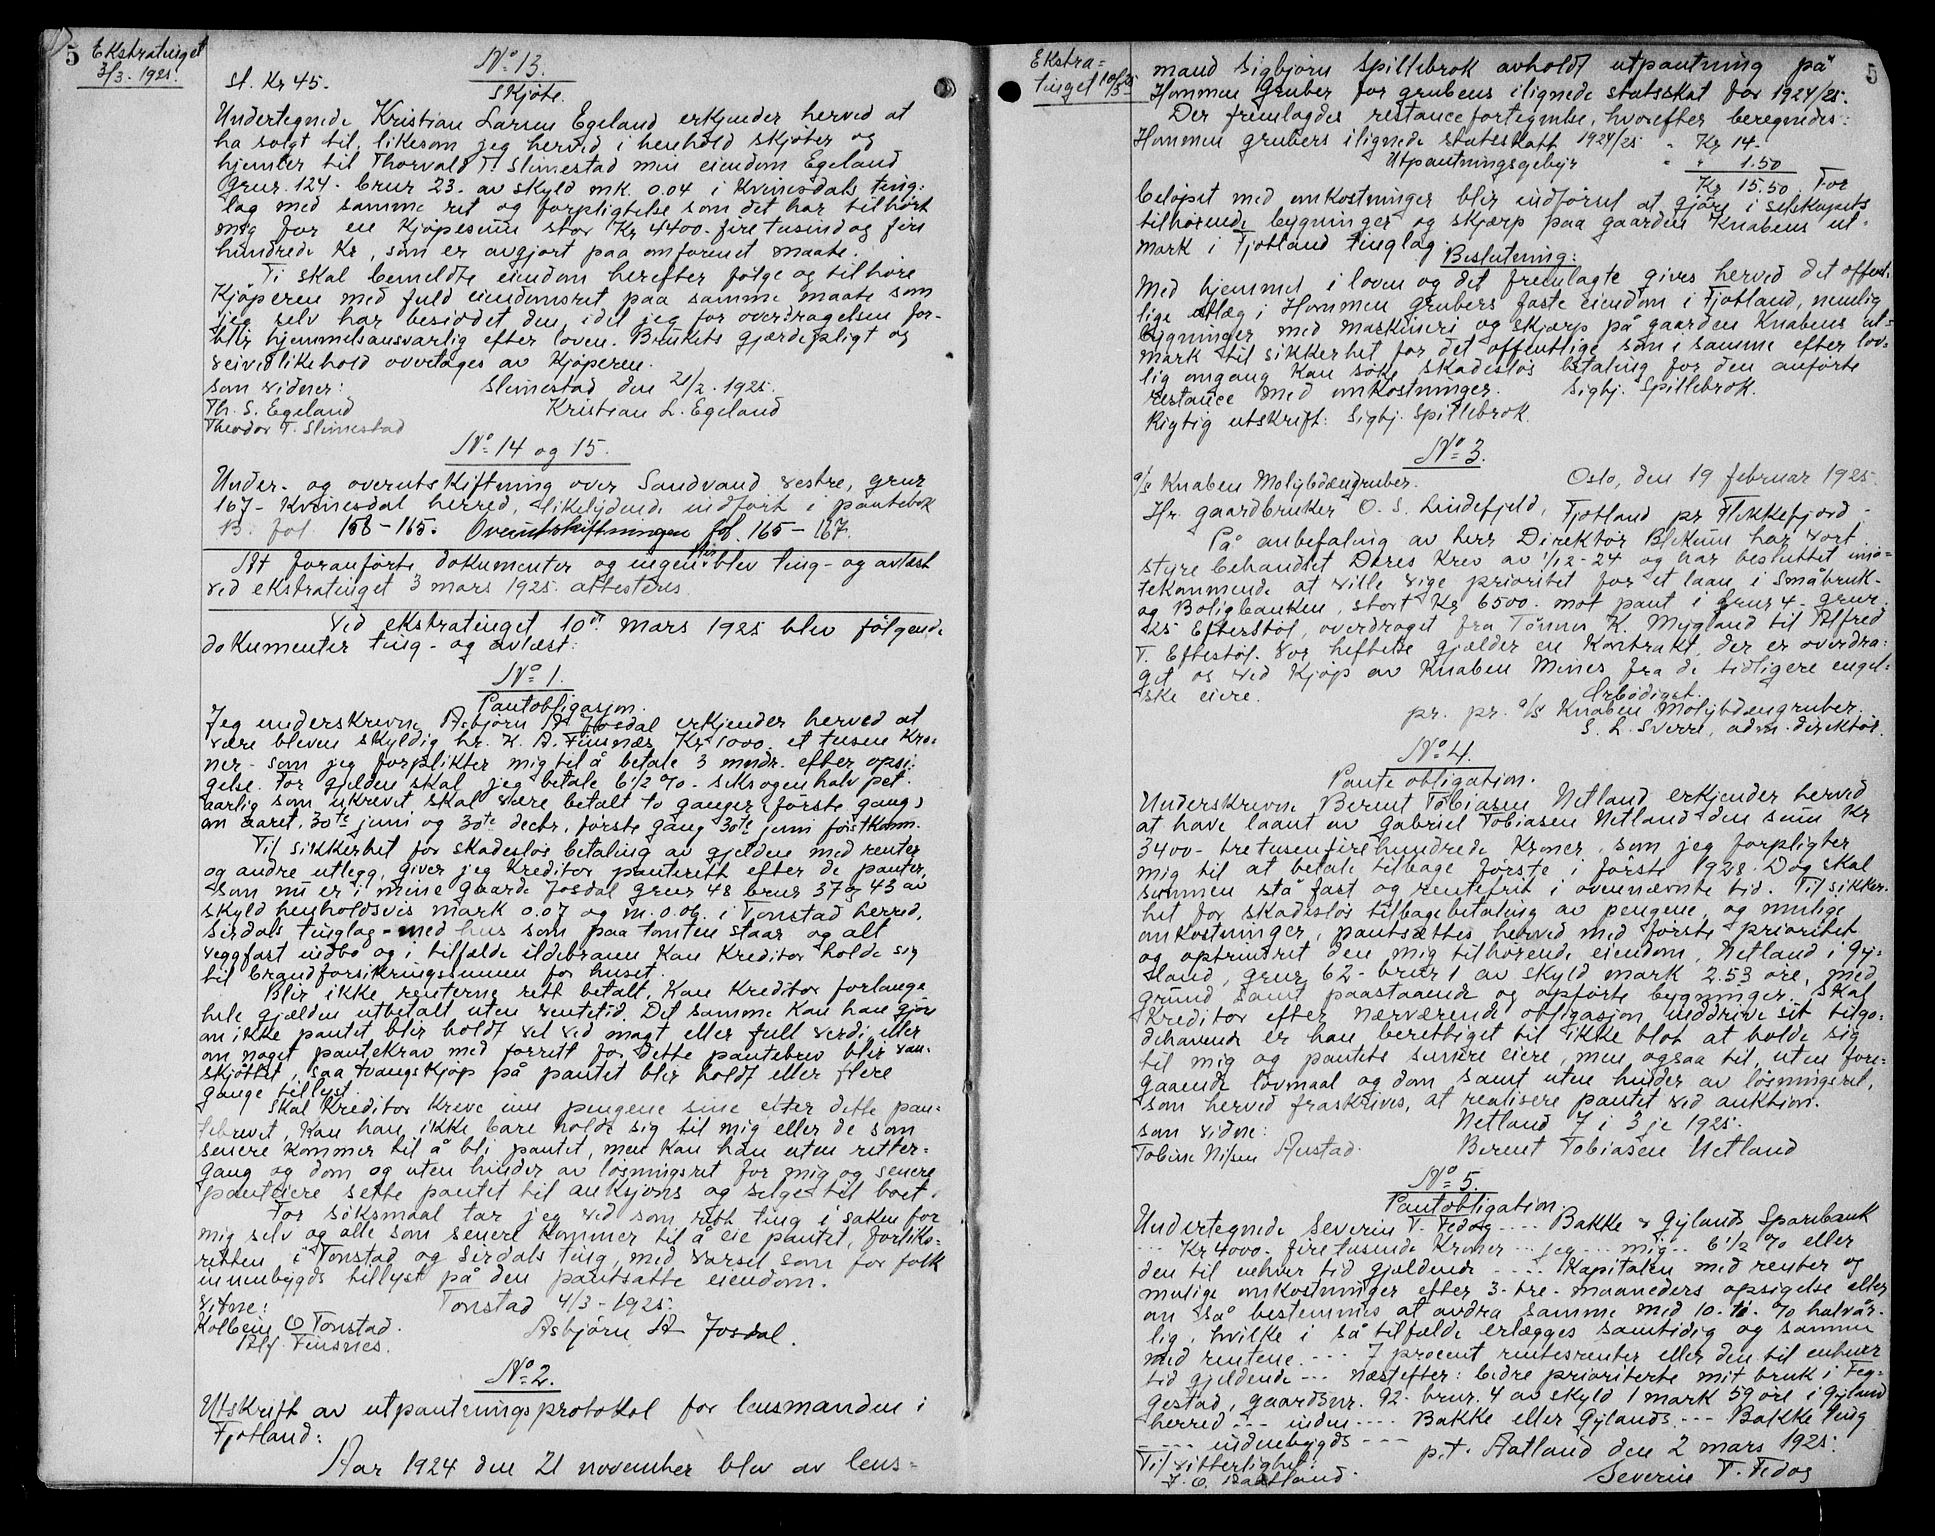 5
Ekstratinget
3/3. 1925.
No 13.
st. Kr 45.
Skjøte.
Undertegnede Kristian Larsen Egeland erkjender herved at
ha solgt til, likesom jeg herved i henhold skjøter og
hjemler til Thorvald T. Slimestad min eiendom Egeland
Gnr. 124. brnr 23. av skyld mk. 0.04 i Kvinesdals ting-
lag med samme ret og forpligtelse som det har tilhørt
mig for en kjøpesum stor Kr 4400. fire tusind og fire
hundrede Kr, som er avgjort paa omforenet maate.
Ti skal bemeldte eiendom herefter følge og tilhøre
Kjøperen med fuld eiendomsret paa samme maate som
jeg selv har besiddet den, idet jeg for overdragelsen for-
blir hjemmelsansvarlig efter loven. Brukets gjærdepligt og
veivedlikehold overtages av kjøperen.
som vidner: Slimestad den 21/2. 1925.
Th. S. Egeland Kristian L. Egeland
Theodor T. Slimestad
No 14 og 15.
Under- og overutskiftning over Sandvand vestre, gnr
167- Kvinesdal herred, likelydende indført i pantebok
B. fol. 158-165. Overutskiftningen fol. 165-167.
At foranførte dokumenter og ingen fler blev ting- og avlæst
ved ekstratinget 3 mars 1925. attesteres.
Ved ekstratinget 10de mars 1925 blev følgende
dokumenter ting- og avlæst:
No 1.
Pantobligasjon.
Jeg underskrevne Asbjørn A. Josdal erkjender herved at
være bleven skyldig hr. K. A. Finsnæs Kr 1000. et tusen kro-
ner- som jeg forplikter mig til å betale 3 mndr. efter opsi-
gelse. For gjelden skal jeg betale 6 1/2 %. seksogenhalv pct.
aarlig som ukrevet skal være betalt to ganger (første gang)
om aaret. 30te juni og 30te decbr. første gang 30te juni førstkom.
Til sikkerhet for skadesløs betaling av gjelden med renter
og andre utlegg, giver jeg kreditor panterett efter de panter,
som nu er i mine gaarde Josdal gnr 48 brnr 37 og 43 av
skyld henholdsvis mark 0.07 og m. 0.06. i Tonstad herred,
Sirdals tinglag- med hus som paa tomten staar og alt
veggfast indbo og i tilfælde ildebrann kan kreditor holde sig
til brandforsikringssummen for huset.
Blir ikke renterne rett betalt, kan kreditor forlange
hele gjælden utbetalt uten ventetid. Det samme kan han gjøre
om ikke pantet blir holdt vel ved magt eller full verdi, eller
om noget pantekrav med forrett for dette pantebrev blir van-
skjøttet, saa tvangskjøp på pantet blir holdt eller flere
gange tillyst.
Skal kreditor kreve inn pengene sine efter dette pan-
tebrevet, kan han ikke bare holde sig til mig eller de som
senere kommer til å bli pantet, men kan han uten retter-
gang og dom og uten hinder av løsningsret for mig og senere
panteeiere sette pantet til auksjons og selges til boet.
For søksmaal tar jeg ved som rett ting i saken for
mig selv og alle som senere kommer til å eie pantet, forliks-
retten i Tonstad og Sirdals ting, med varsel som for folk
innenbygds tillyst på den pantsatte eiendom.
vitne: Tonstad 4/3-1925.
Kolbein O Tonstad. Asbjørn A Josdal.
Alf. Finsnes.
No 2.
Utskrift av utpantningsprotokol for lensmanden i
Fjotland:
Aar 1924 den 21 november blev av lens-
Ekstra-
tinget 10/3 25
5
mand Sigbjørn Spillebrok avholdt utpantning på
Hommen Gruber for grubens ilignede statsskat for 1924/25.
Der fremlagdes restancefortegnelse, hvorefter beregnedes:
Hommen grubers ilignede statsskatt 1924/25 - Kr 14.-
Utpantningsgebyr " " 1.50
Kr 15.50. For
beløpet med omkostninger blir indførsel at gjøre i selskapets
tilhørende bygninger og skjærp paa gaarden Knabens ut-
mark i Fjotland tinglag.
Beslutning:
Med hjemmel i loven og det fremlagte gives herved det offent-
lige utlæg i Hommen grubers faste eiendom i Fjotland, nemlig
bygninger med maskineri og skjærp på gaarden Knabens ut-
mark til sikkerhet for det offentlige som i samme efter lov-
lig omgang kan søke skadesløs betaling for den anførte
restance med omkostninger. Sigbj. Spillebrok.
Rigtig utskrift: Sigbj. Spillebrok.
No 3.
a/s Knaben Molybdængruber. Oslo, den 19 februar 1925.
Hr. gaardbruker O. S. Lindefjeld, Fjotland pr Flekkefjord.
På anbefaling av herr Direktør Blekum har vort
styre behandlet Deres krev av 1/12-24 og har besluttet imø-
tekommende at ville vige prioritet for et laan i Småbruk-
og Boligbanken, stort Kr 6500. mot pant i brnr 4. gnr.
25 Eftestøl, overdraget fra Tønnes K. Mygland til Alfred
T. Eftestøl. Vor heftelse gjælder en kontrakt, der er overdra-
get os ved kjøp av Knaben Mines fra de tidligere engel-
ske eiere. Ærbødigst.
pr. pr. a/s Knaben Molybdængruber.
S. L. Sverre, adm. direktør.
No 4.
Panteobligation.
Underskrevne Bernt Tobiasen Netland erkjender herved
at have laant av Gabriel Tobiasen Netland den sum Kr
3400- tretusenfirehundrede kroner, som jeg forpligter
mig til at betale tilbage første i første 1928. Dog skal
summen stå fast og rentefrit i ovennævnte tid. Til sikker-
het for skadesløs tilbagebetaling av pengene, og mulige
omkostninger, pantsættes herved med første prioritet
og optrinsret den mig tilhørende eiendom, Netland i Gy-
land, gnr 62- brnr 1 av skyld mark 2.53 øre, med
grund samt paastaaende og opførte bygninger. Skal
kreditor efter nærværende obligasjon inddrive sit tilgo-
dehavende er han berettiget til ikke blot at holde sig
til mig og pantets senere eiere, men ogsaa til, uten fore-
gaaende lovmaal og dom samt uten hinder av løsningsret,
som herved fraskrives, at realisere pantet ved auktion.
som vidne: Netland 7 i 3je 1925.
Tobias Nilsen Austad. Bernt Tobiasen Netland
No 5.
Pantobligation.
Undertegnede Severin T. Fedog .... Bakke & Gylands Sparebank
... Kr 4000. firetusinde kroner ... jeg ... mig .. 6 1/2 % eller
den til enhver tid gjældende .... Kapitalen med renter og
mulige omkostninger efter 3- tre- maaneders opsigelse eller
om så bestemmes at avdra samme med 10- ti- % halvår-
lig, hvilke i så tilfælde erlægges samtidig og sammen
med rentene. ... 7 procent rentesrenter eller den til enhver
tid gjældende ... næstefter: bedre prioriterte mit bruk i Feg-
gestad, gaardsnr. 92- brnr. 4 av skyld 1 mark 59 øre i Gyland
herred --- inden .... Bakke eller Gylands --- Bakke ting
---- indenbygds --- p.t. Aatland den 2 mars 1925.
Til vitterlighet: Severin T. Fedog